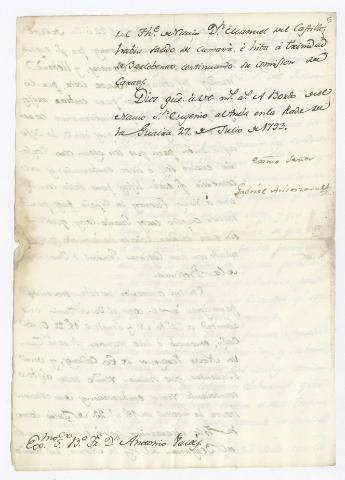 del Thē. de Navio Dn. Manuel del Castillo,
havia salido de Cumaná, é hiba á Trinidad
de Barlobento, continuando su comision de
Dios gūe. á V.E. ms. as. A Bordo del
Navio Sn. Eugenio al Ancla en la Rada de
la Guaira 27. de Julio de 1793.
Exmo Señor
Gabriel
Exmo. Sr. Bo. Fr. Dn. Antonio Valdés